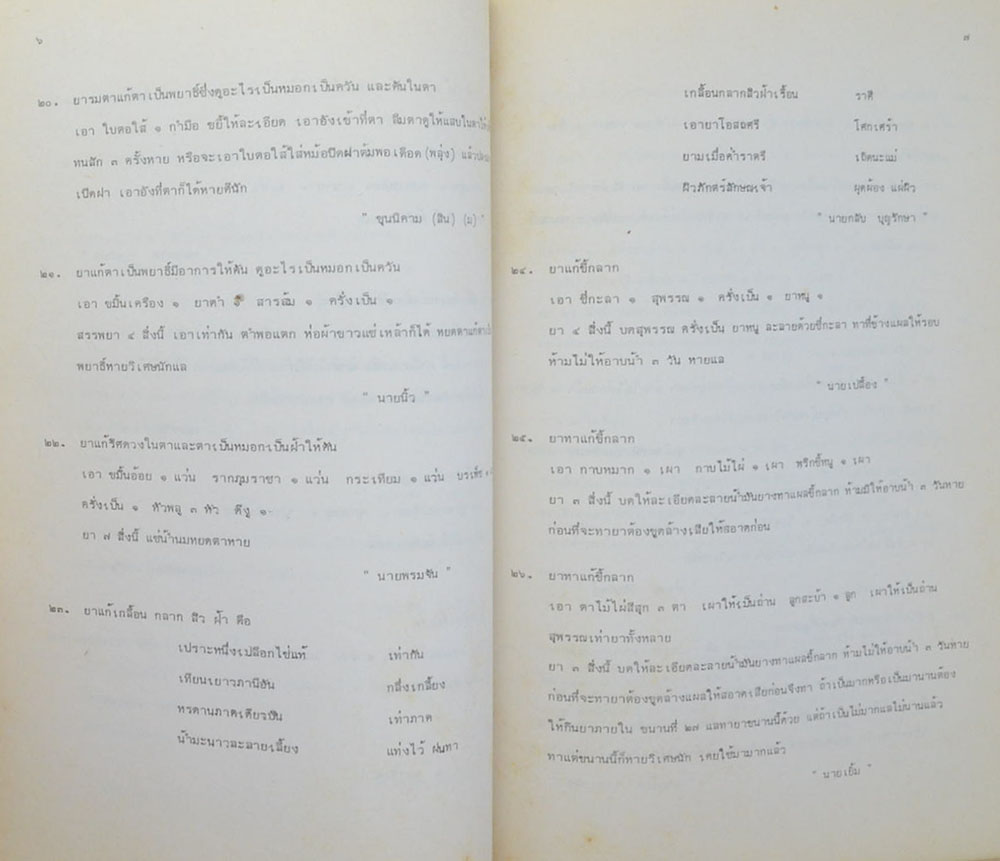 ๖
๒๐. ยารมตาแก้ตาเป็นพยาธิ์ซึ่งดูอะไรเป็นหมอกเป็นควัน และคันในตา
เอา ใบตอใส้ ๑ กำมือ ขยี้ให้ละเอียด เอาอังเข้าที่ตา ลืมตาดูให้แสบในตา
ทนสัก ๓ ครั้งหาย หรือจะเอาใบตอใส้ใส่หม้อปิดฝาต้มพอเดือด (พลุ่ง) แล้ว
เปิดฝา เอาอังที่ตาก็ได้หายดีนัก
" ขุนนิคาม (สิน) (ม) "
๒๑. ยาแก้ตาเป็นพยาธิ์มีอาการให้คัน ดูอะไรเป็นหมอกเป็นควัน
เอา ขมิ้นเครือง ๑ ยาดำ ๑ สารส้ม ๑ ครั่งเป็น ๑
สรรพยา ๔ สิ่งนี้ เอาเท่ากัน ตำพอแตก ห่อผ้าขาวแช่เหล้าก็ได้ หยดตาแก้ตา
พยาธิ์หายวิเศษนักแล
" นายนิ้ว "
๒๒. ยาแก้ริศดวงในตาและตาเป็นหมอกเป็นฝ้าให้คัน
เอา ขมิ้นอ้อย ๑ แว่น รากภุมราชา ๑ แว่น กระเทียม ๑ แว่น บรเพ็ร
ครั่งเป็น ๑ หัวพลู ๓ หัว ดีงู ๑
ยา ๗ สิ่งนี้ แช่น้ำนมหยดตาหาย
" นายพรมจัน "
๒๓. ยาแก้เกลื้อน กลาก สิว ฝ้า คือ
เปราะหนึ่งเปลือกไข่แท้ เท่ากัน
เทียนเยาวภานีอัน กลึ่งเกลี้ยง
หรดานภาคเดียวปัน เท่าภาค
น้ำมะนาวละลายเลี้ยง แท่งไว้ ฝนทา
๗
เกลื้อนกลากสิวฝ้าเรื้อน ราศี
เอายาโอสถศรี โศกเศร้า
ยามเมื่อค่ำราตรี เจิดนะแม่
ผิวภักตร์ลักษณเจ้า ผุดผ้อง แผ่ผิว
" นายกลับ บุญรักษา "
๒๔. ยาแก้ขี้กลาก
เอา ชี่กะลา ๑ สุพรรณ ๑ ครั่งเป็น ๑ ยาหนู ๑
ยา ๔ สิ่งนี้ บดสุพรรณ ครั่งเป็น ยาหนู ละลายด้วยชี่กะลา ทาที่ข้างแผลให้รอบ
ห้ามไม่ให้อาบน้ำ ๓ วัน หายแล
" นายเปลื้อง "
๒๕. ยาทาแก้ขี้กลาก
เอา กาบหมาก ๑ เผา กาบไม้ไผ่ ๑ เผา พริกขี้หนู ๑ เผา
ยา ๓ สิ่งนี้ บดให้ละเอียดละลายน้ำมันยางทาแผลขี้กลาก ห้ามมิให้อาบน้ำ ๓ วันหาย
ก่อนที่จะทายาต้องขูดล้างเสียให้สอาดก่อน
๒๖. ยาทาแก้ขี้กลาก
เอา ตาไม้ไผ่สีสุก ๓ ตา เผาให้เป็นถ่าน ลูกสะบ้า ๑ ลูก เผาให้เป็นถ่าน
สุพรรณเท่ายาทั้งหลาย
ยา ๓ สิ่งนี้ บดให้ละเอียดละลายน้ำมันยางทาแผลขี้กลาก ห้ามไม่ให้อาบน้ำ ๓ วันหาย
ก่อนที่จะทายาต้องขูดล้างแผลให้สอาดเสียก่อนจึงทา ถ้าเป็นมากหรือเป็นมานานต้อง
ให้กินยาภายใน ขนานที่ ๒๗ แลทายาขนานนี้ด้วย แต่ถ้าเป็นไม่มากแลไม่นานแล้ว
ทาแต่ขนานนี้ก็หายวิเศษนัก เคยใช้มามากแล้ว
" นายเยิ้ม "